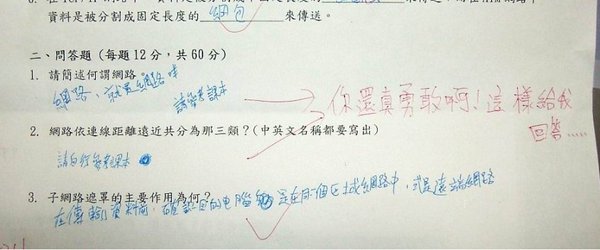 資料是被分割成固定長度的 網包 來傳送。
二、問答題(每題12分,共60分)
1. 請簡述何謂網路
網路,就是網路呀
請參考課本
你還真勇敢啊!這樣給我
回答.....
2. 網路依連線距離遠近共分為那三類?(中英文名稱都要寫出)
請自行參考課本
3. 子網路遮罩的主要作用為何?
在傳輸資料前 確認目的电腦 是在同個区域網路中,或是遠端網路